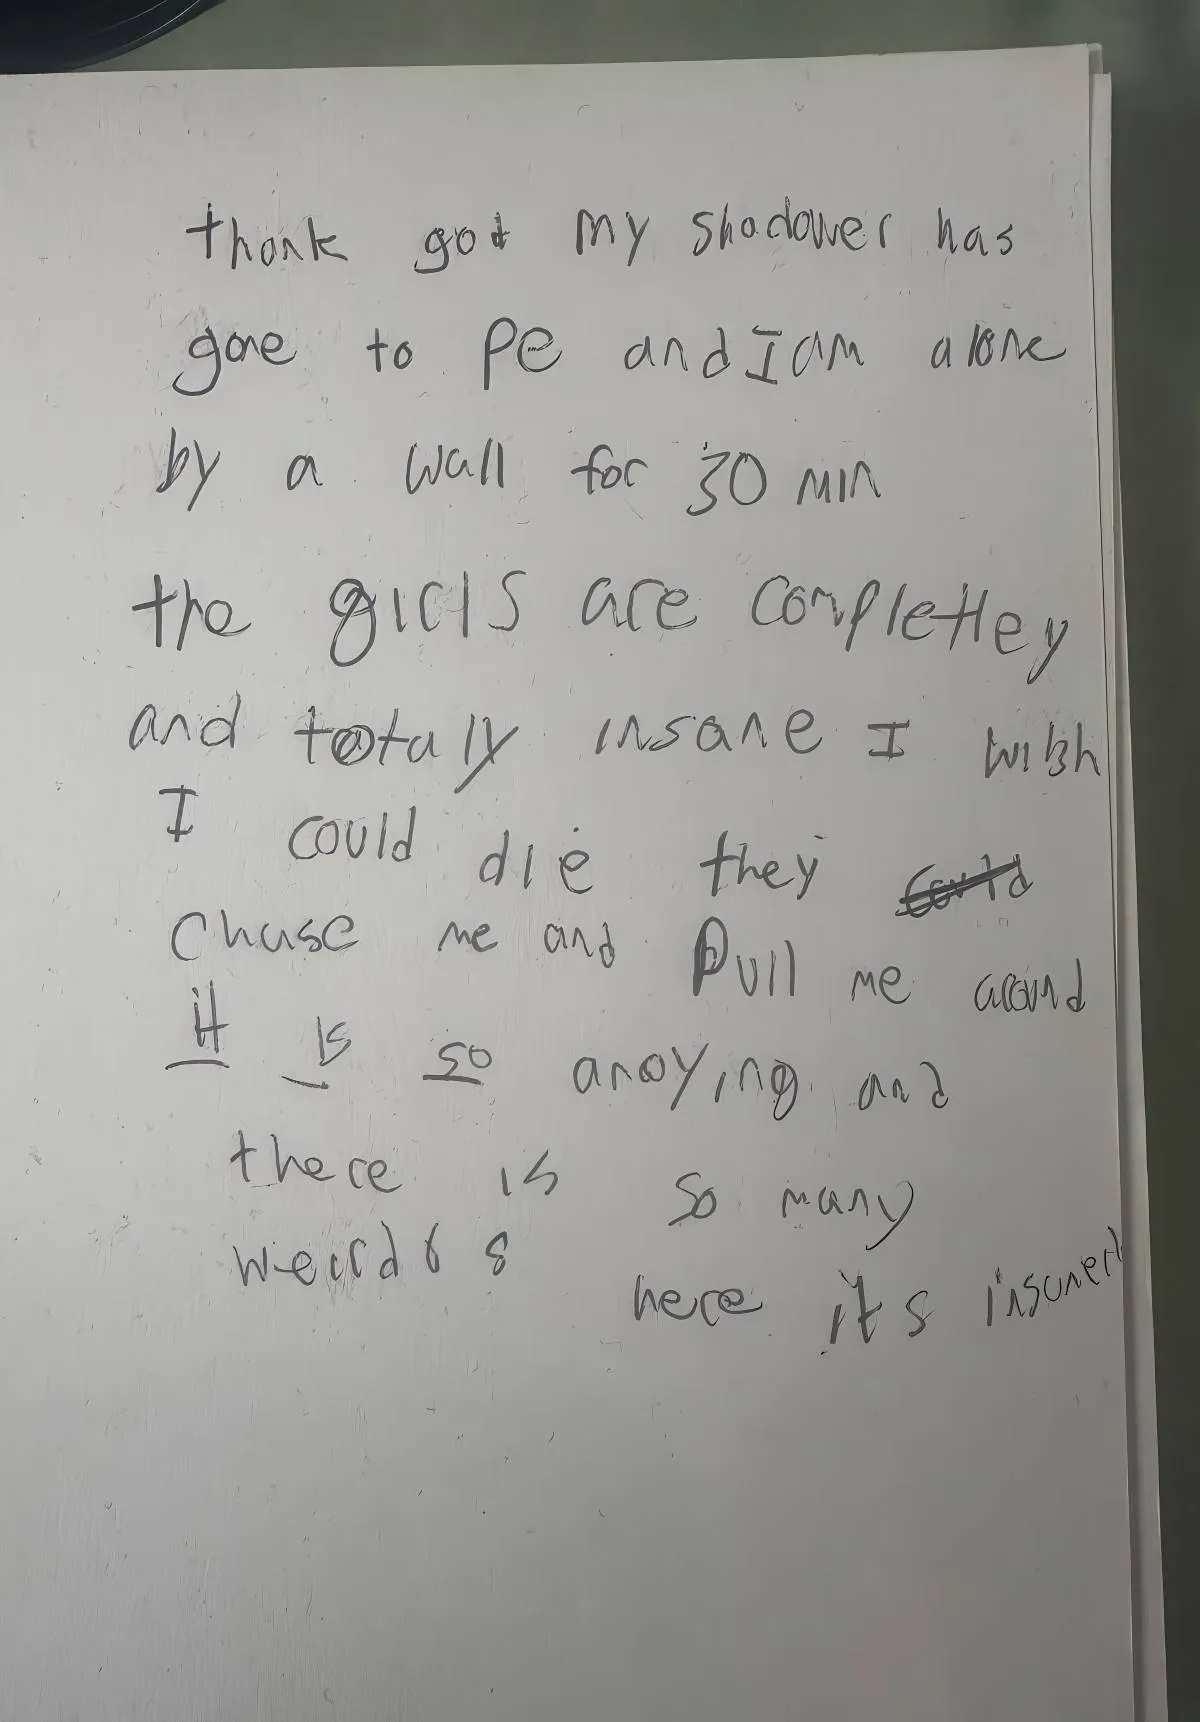 thank god my shadower has
gone to PE and I am alone
by a wall for 30 min
the girls are completley
and totaly insane I wish
I could die they could
chase me and Pull me around
it is so anoying and
there is so many
weirdos here it's insane